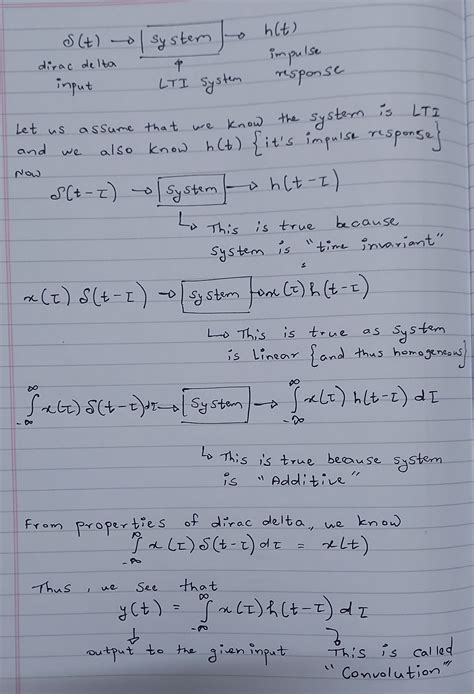 δ(t) → [system] → h(t)
dirac delta input
↑ LTI system
impulse response
Let us assume that we know the system is LTI
and we also know h(t) {it's impulse response}
Now
δ(t-τ) → [system] → h(t-τ)
↳ This is true because
system is "time invariant"
x(τ) δ(t-τ) → [system] → x(τ) h(t-τ)
↳ This is true as system
is linear {and thus homogeneous}
∫_{-∞}^{∞} x(τ) δ(t-τ)dτ → [system] → ∫_{-∞}^{∞} x(τ) h(t-τ) dτ
↳ This is true because system
is "Additive"
From properties of dirac delta, we know
∫_{-∞}^{∞} x(τ) δ(t-τ) dτ = x(t)
Thus, we see that
y(t) = ∫_{-∞}^{∞} x(τ) h(t-τ) dτ
↓ output to the given input
↓ This is called
"Convolution"